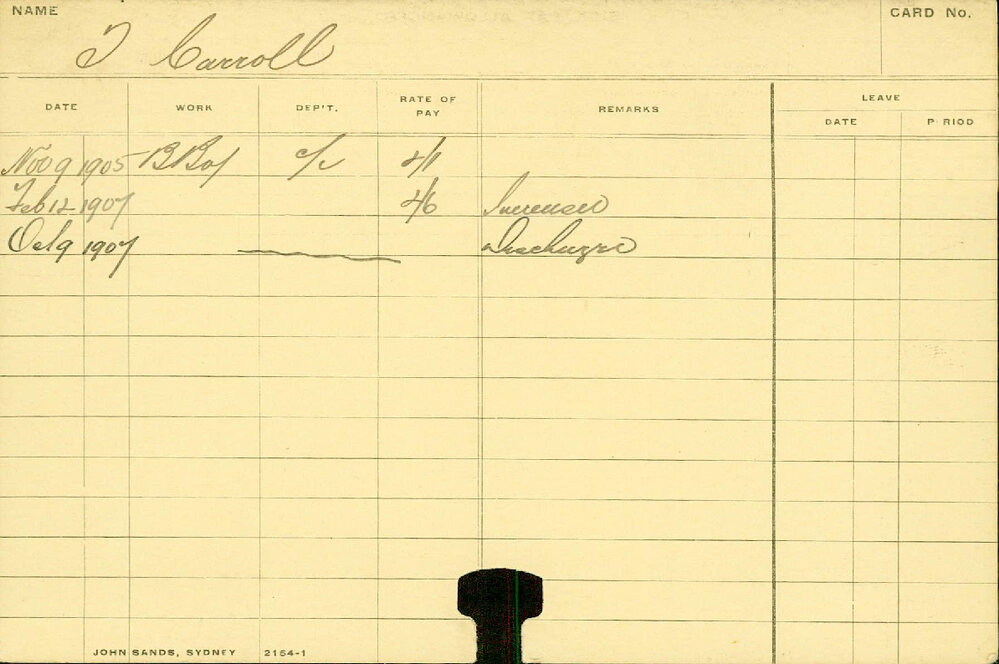 NAME
CARD No.
T Carroll
DATE WORK DEP'T. RATE OF PAY REMARKS LEAVE
DATE P RIOD
Nov 9 1905 B Boy c/c 4/1
Feb 12 1907 4/6 Increased
Oct 9 1907 Discharged
JOHN SANDS, SYDNEY 2154-1